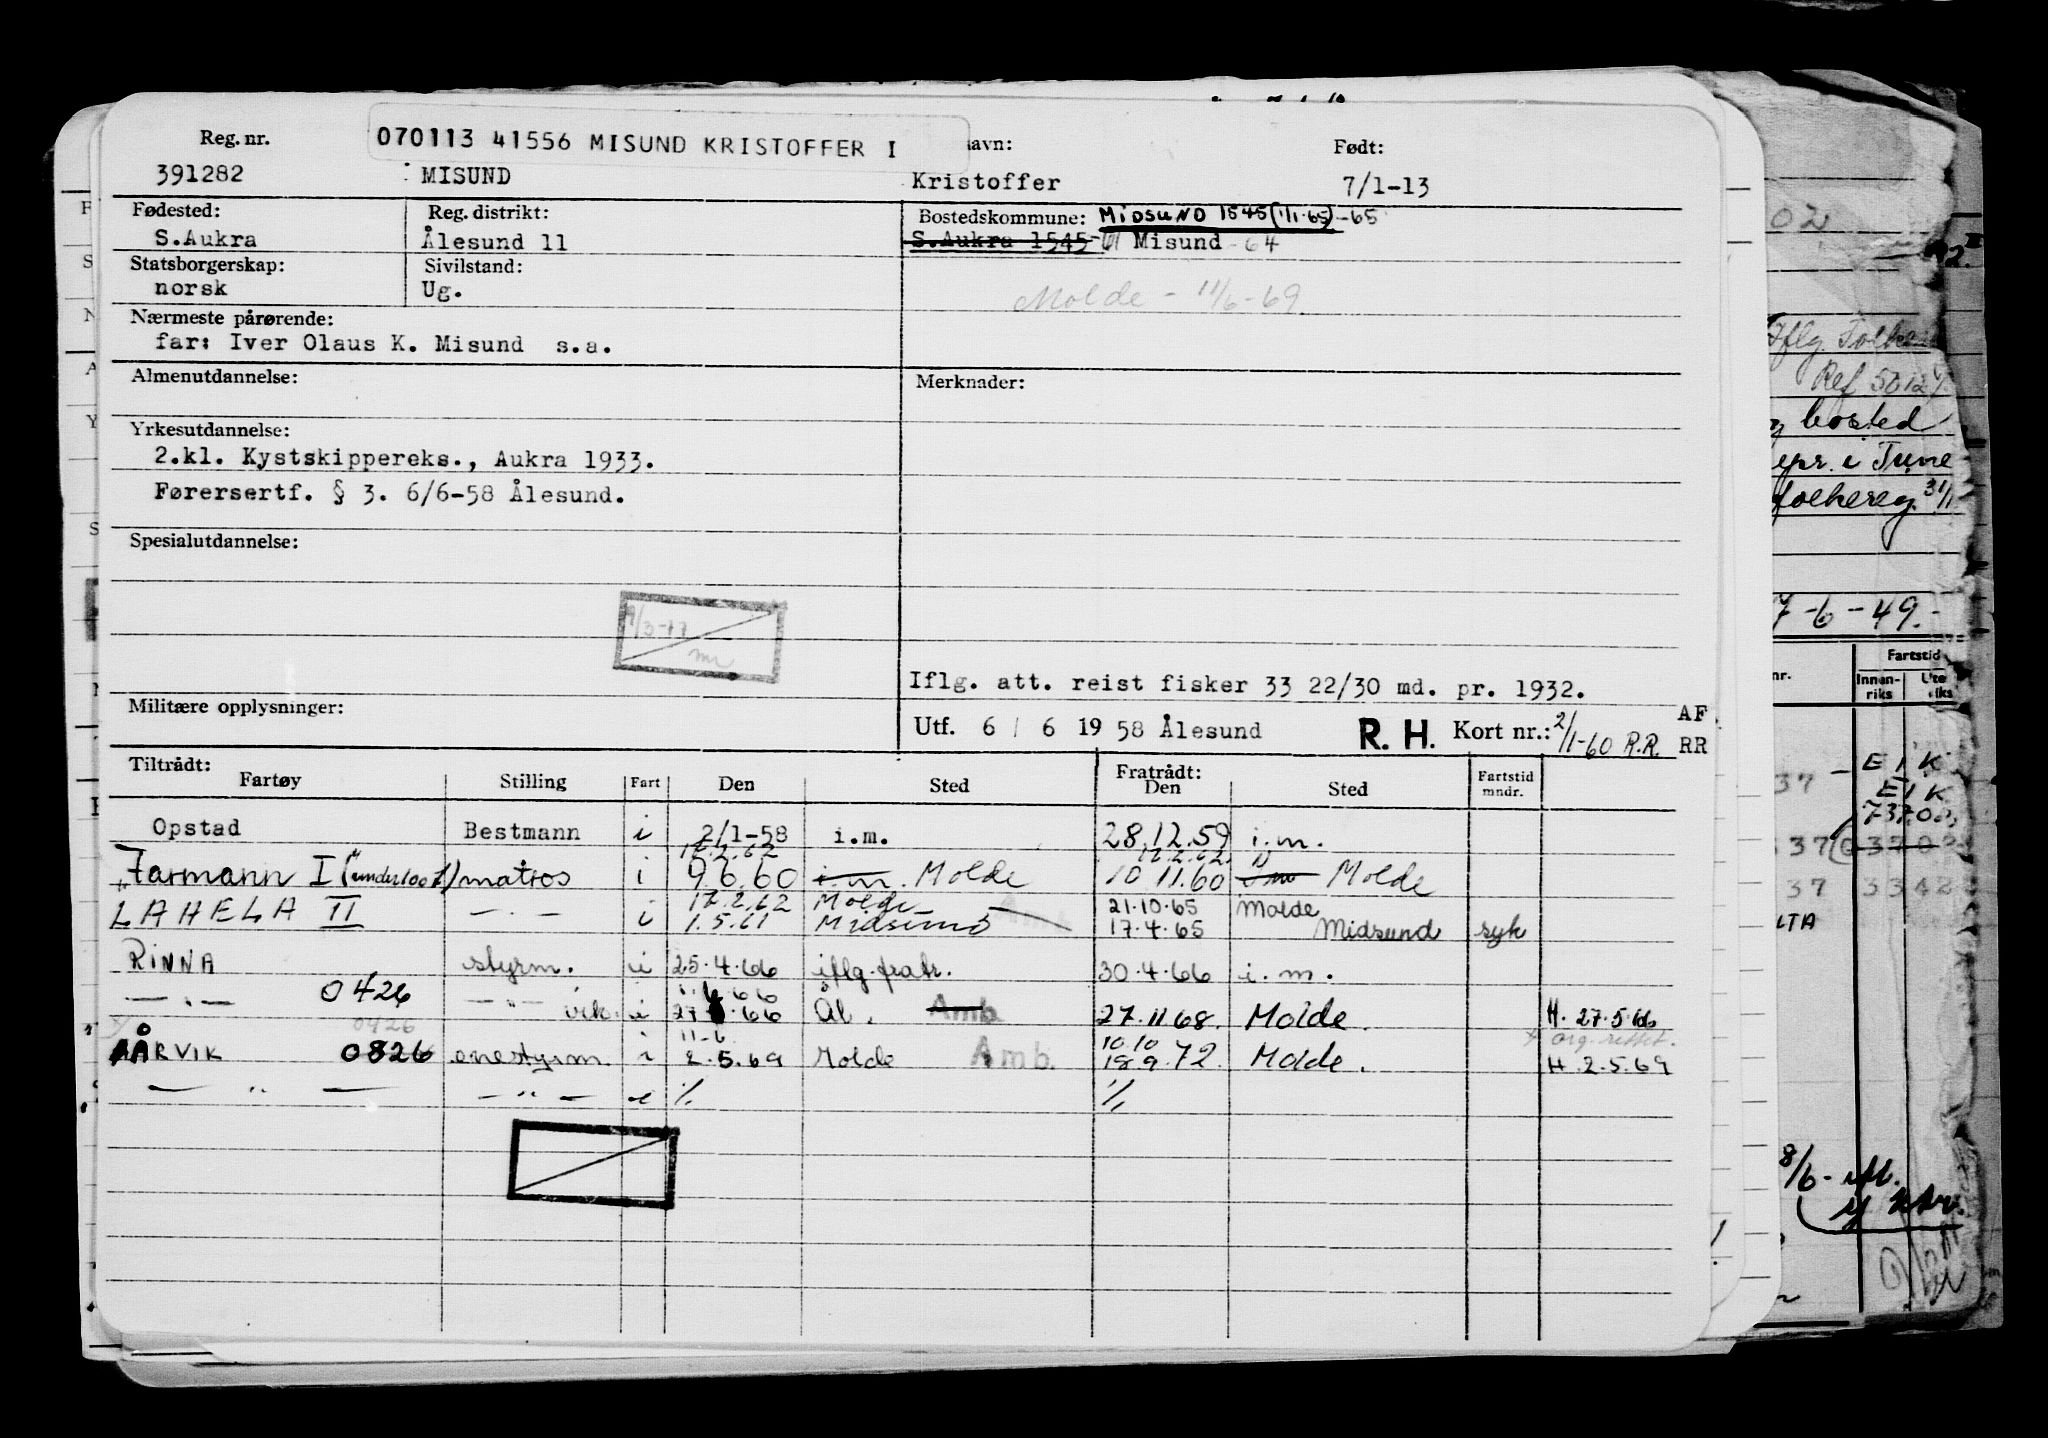 070113 41556 MISUND KRISTOFFER I
Reg. nr. avn: Født:
391282 MISUND Kristoffer 7/1-13
Fødested: Reg. distrikt: Bostedskommune: MIDSUND 1545 (1/1-65) -65
S.Aukra Ålesund 11 S.Aukra 1545-61 Misund -64
Statsborgerskap: Sivilstand:
norsk Ug. Molde - 11/6-69
Nærmeste pårørende:
far: Iver Olaus K. Misund s.a.
Almenutdannelse: Merknader:
Yrkesutdannelse:
2.kl. Kystskippereks., Aukra 1933.
Førersertf. § 3. 6/6-58 Ålesund.
Spesialutdannelse:
Iflg. att. reist fisker 33 22/30 md. pr. 1932.
Militære opplysninger: Utf. 6 / 6 19 58 Ålesund R. H. Kort nr.: 2/1-60 R.R. AF RR
Tiltrådt: Fratrådt:
Fartøy Stilling Fart Den Sted Den Sted Fartstid mndr.
Opstad Bestmann i 2/1-58 i.m. 28.12.59 i.m.
17.2.62 17.2.62
Farmann I (under 100 t) matros i 9.6.60 i.m. Molde 10.11.60 Molde
17.2.62 Molde 21.10.65 Molde
LAHELA II — . — i 1.5.61 Midsund 17.4.65 Midsund syk
RINNA styrm. i 25.4.66 iflg. fratr. 30.4.66 i.m.
— " — 0426 — " — vik. i 27 .66 Ål. Amb. 27.11.68. Molde. H. 27.5.66
0426 11-6 10.10 org. rettet.
ÅRVIK 0826 enestyrm. i 2.5.69 Molde Amb. 18.9.72. Molde. H. 2.5.69
— " — — " — i 1/1 1/1
02
Iflg. Folke
Ref 5012
bosted
i Tune
folkereg. 31/1
7-6-49.
Fartstid
nr. Innen-riks Ute
37 E I K
E I K
37 3342
LTA
8/6